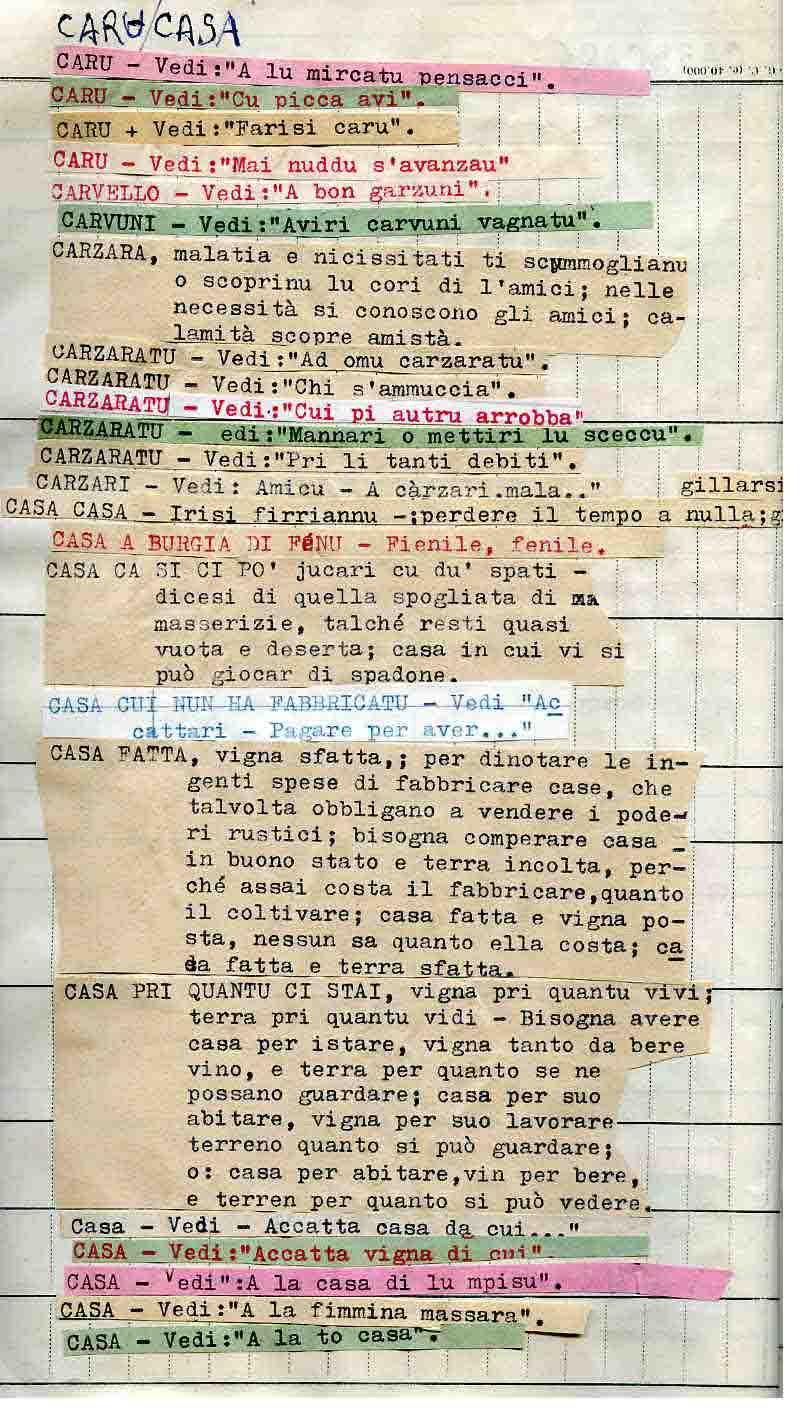 CARU/CASA
CARU - Vedi:"A lu mircatu pensacci".
CARU - Vedi:"Cu picca avi".
CARU + Vedi:"Farisi caru".
CARU - Vedi:"Mai nuddu s'avanzau"
CARVELLO - Vedi:"A bon garzuni".
CARVUNI - Vedi:"Aviri carvuni vagnatu".
CARZARA, malatia e nicissitati ti scummoglianu
o scoprinu lu cori di l'amici; nelle
necessità si conoscono gli amici; ca-
lamità scopre amistà.
CARZARATU - Vedi:"Ad omu carzaratu".
CARZARATU - Vedi:"Chi s'ammuccia".
CARZARATU - Vedi:"Cui pi autru arrobba"
CARZARATU - edi:"Mannari o mettiri lu sceccu".
CARZARATU - Vedi:"Pri li tanti debiti".
CARZARI - Vedi: Amicu - A càrzari.mala.." gillarsi
CASA CASA - Irisi firriannu -;perdere il tempo a nulla;g
CASA A BURGIA DI FéNU - Fienile, fenile.
CASA CA SI CI PO' jucari cu du' spati -
dicesi di quella spogliata di ma
masserizie, talché resti quasi
vuota e deserta; casa in cui vi si
può giocar di spadone.
CASA CUI NUN HA FABBRICATU - Vedi "Ac
cattari - Pagare per aver..."
CASA FATTA, vigna sfatta,; per dinotare le in-
genti spese di fabbricare case, che
talvolta obbligano a vendere i pode-
ri rustici; bisogna comperare casa _
in buono stato e terra incolta, per-
ché assai costa il fabbricare,quanto
il coltivare; casa fatta e vigna po-
sta, nessun sa quanto ella costa; ca
da fatta e terra sfatta.
CASA PRI QUANTU CI STAI, vigna pri quantu vivi;
terra pri quantu vidi - Bisogna avere
casa per istare, vigna tanto da bere
vino, e terra per quanto se ne
possano guardare; casa per suo
abitare, vigna per suo lavorare
terreno quanto si può guardare;
o: casa per abitare,vin per bere,
e terren per quanto si può vedere.
Casa - Vedi - Accatta casa da cui..."
CASA - Vedi:"Accatta vigna di cui"
CASA - Vedi":A la casa di lu mpisu".
CASA - Vedi:"A la fimmina massara".
CASA - Vedi:"A la to casa".